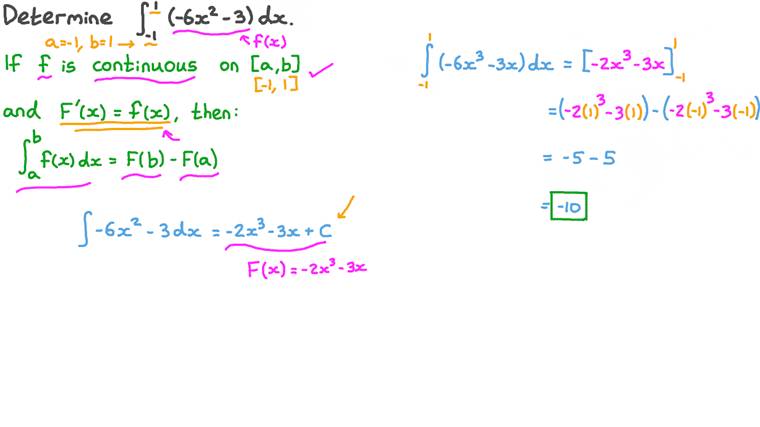 Determine ∫₋₁¹ (-6x² - 3) dx.
a=-1, b=1 → f(x)
If f is continuous on [a,b]
[-1, 1]
and F'(x) = f(x), then:
∫ₐᵇ f(x) dx = F(b) - F(a)
∫ -6x² - 3 dx = -2x³ - 3x + C
F(x) = -2x³ - 3x
∫₋₁¹ (-6x³ - 3x) dx = [-2x³ - 3x]₋₁¹
= (-2(1)³ - 3(1)) - (-2(-1)³ - 3(-1))
= -5 - 5
= -10